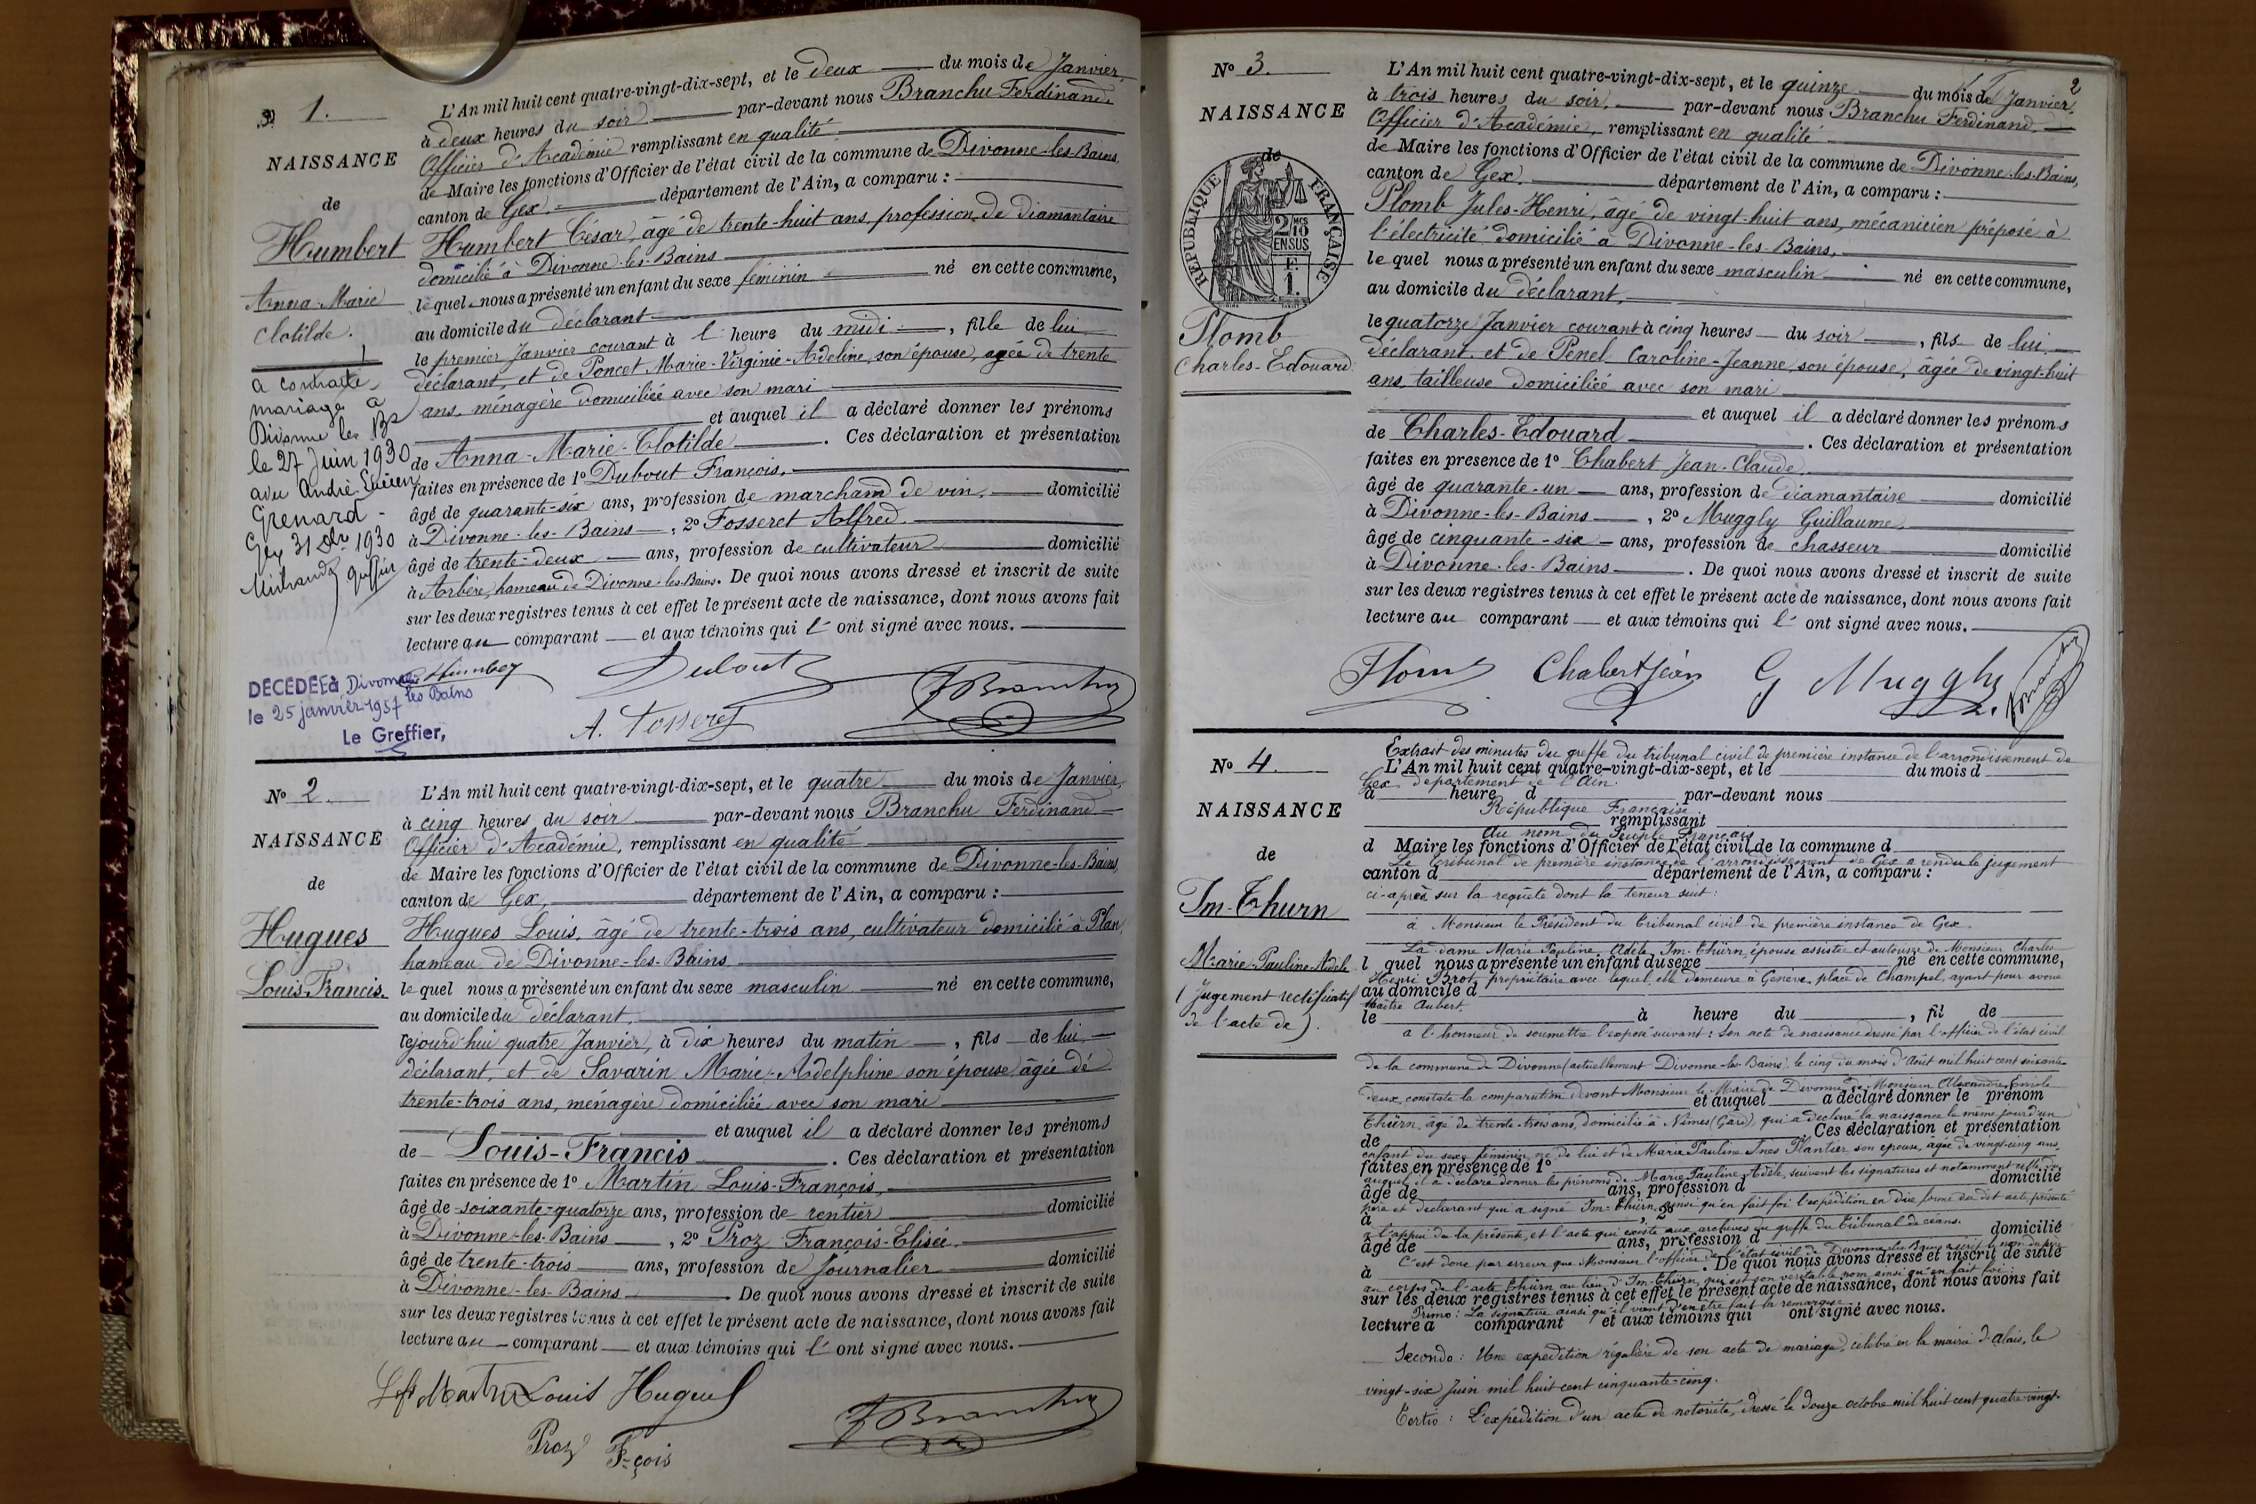 N° 1.
NAISSANCE
de
Humbert
Anna-Marie
Clotilde.
a contracté
mariage à
Divonne les Bs
le 27 Juin 1930
avec André Lucien
Grenard -
Gex 31 Xbre 1930
greffier
L'An mil huit cent quatre-vingt-dix-sept, et le deux du mois de Janvier,
à deux heures du soir par-devant nous Branchu Ferdinand
Officier d'Académie remplissant en qualité
de Maire les fonctions d'Officier de l'état civil de la commune de Divonne-les-Bains,
canton de Gex. département de l'Ain, a comparu :
Humbert César, âgé de trente-huit ans, profession de diamantaire
domicilié à Divonne-les-Bains
lequel nous a présenté un enfant du sexe féminin né en cette commune,
au domicile du déclarant
le premier Janvier courant à l heure du midi, fille de lui
déclarant, et de Poncet Marie-Virginie-Adeline, son épouse, agée de trente
ans, ménagère domiciliée avec son mari
et auquel il a déclaré donner les prénoms
de Anna-Marie-Clotilde. Ces déclaration et présentation
faites en présence de 1° Dubout François,
âgé de quarante-six ans, profession de marchand de vin, domicilié
à Divonne-les-Bains, 2° Fosseret Alfred.
âgé de trente-deux ans, profession de cultivateur domicilié
à Arbère, hameau de Divonne-les-Bains. De quoi nous avons dressé et inscrit de suite
sur les deux registres tenus à cet effet le présent acte de naissance, dont nous avons fait
lecture au comparant et aux témoins qui l' ont signé avec nous.
Humbert Dubout
A. Fosseret F Branchu
DÉCÉDÉE à Divonne
les Bains
le 25 janvier 1957
Le Greffier,
N° 2.
NAISSANCE
de
Hugues
Louis-Francis.
L'An mil huit cent quatre-vingt-dix-sept, et le quatre du mois de Janvier,
à cinq heures du soir par-devant nous Branchu Ferdinand
Officier d'Académie, remplissant en qualité
de Maire les fonctions d'Officier de l'état civil de la commune de Divonne-les-Bains,
canton de Gex, département de l'Ain, a comparu :
Hugues Louis, âgé de trente-trois ans, cultivateur domicilié à Plan,
hameau de Divonne-les-Bains
lequel nous a présenté un enfant du sexe masculin né en cette commune,
au domicile du déclarant
cejourd'hui quatre Janvier, à dix heures du matin, fils de lui
déclarant, et de Savarin Marie-Adelphine son épouse âgée de
trente-trois ans, ménagère domiciliée avec son mari
et auquel il a déclaré donner les prénoms
de Louis-Francis. Ces déclaration et présentation
faites en présence de 1° Martin Louis-François,
âgé de soixante-quatorze ans, profession de rentier domicilié
à Divonne-les-Bains, 2° Proz François-Elisée.
âgé de trente-trois ans, profession de journalier domicilié
à Divonne-les-Bains De quoi nous avons dressé et inscrit de suite
sur les deux registres tenus à cet effet le présent acte de naissance, dont nous avons fait
lecture au comparant et aux témoins qui l' ont signé avec nous.
Martin Louis Hugues
Proz F-çois F Branchu
2
N° 3.
NAISSANCE
de
RÉPUBLIQUE FRANÇAISE
2/10
EN SUS
F.
1.
Plomb
Charles-Edouard
L'An mil huit cent quatre-vingt-dix-sept, et le quinze du mois de Janvier,
à trois heures du soir, par-devant nous Branchu Ferdinand.
Officier d'Académie, remplissant en qualité
de Maire les fonctions d'Officier de l'état civil de la commune de Divonne-les-Bains,
canton de Gex. département de l'Ain, a comparu :
Plomb Jules-Henri, âgé de vingt-huit ans, mécanicien préposé à
l'électricité domicilié à Divonne-les-Bains,
lequel nous a présenté un enfant du sexe masculin né en cette commune,
au domicile du déclarant,
le quatorze Janvier courant à cinq heures du soir, fils de lui
déclarant, et de Penel Caroline-Jeanne, son épouse, âgée de vingt-huit
ans, tailleuse domiciliée avec son mari
et auquel il a déclaré donner les prénoms
de Charles-Edouard. Ces déclaration et présentation
faites en presence de 1° Chabert Jean-Claude.
âgé de quarante-un ans, profession de diamantaire domicilié
à Divonne-les-Bains, 2° Muggly Guillaume
âgé de cinquante-six ans, profession de chasseur domicilié
à Divonne-les-Bains. De quoi nous avons dressé et inscrit de suite
sur les deux registres tenus à cet effet le présent acte de naissance, dont nous avons fait
lecture au comparant et aux témoins qui l' ont signé avec nous.
Plomb Chabert Jean G Muggly
N° 4.
NAISSANCE
de
Im-Thurn
Marie-Pauline-Adèle
(Jugement rectificatif
de l'acte de).
Extrait des minutes du greffe du tribunal civil de première instance de l'arrondissement de
L'An mil huit cent quatre-vingt-dix-sept, et le du mois d
Gex département de l'Ain.
à heure d par-devant nous
République Française
remplissant
Au nom du Peuple Français
d Maire les fonctions d'Officier de l'état civil de la commune d
Le tribunal de première instance de l'arrondissement de Gex a rendu le jugement
canton d département de l'Ain, a comparu :
ci-après sur la requête dont la teneur suit :
à Monsieur le Président du tribunal civil de première instance de Gex.
La dame Marie Pauline Adèle Im-Thürn, épouse assistée et autorisée de Monsieur Charles
l quel nous a présenté un enfant du sexe né en cette commune,
Henri Brot, propriétaire avec lequel elle demeure à Genève, place de Champel, ayant pour avoué
au domicile d
Maître Aubert
le à heure du , fil de
a l'honneur de soumettre l'exposé suivant : Son acte de naissance dressé par l'officier de l'état civil
de la commune de Divonne (actuellement Divonne-les-Bains), le cinq du mois d'Août mil huit cent soixante
deux, constate la comparution devant Monsieur le Maire de Divonne, de Monsieur Alexandre Emile
et auquel a déclaré donner le prénom
Thürn, âgé de trente-trois ans, domicilié à Nîmes (Gard), qui a déclaré la naissance le même jour d'un
de Ces déclaration et présentation
enfant du sexe féminin, né de lui et de Marie Pauline Ines Plantier son épouse, âgée de vingt-cinq ans,
faites en présence de 1°
auquel il a déclaré donner les prénoms de Marie Pauline Adèle, suivent les signatures et notamment celle du
âgé de ans, profession d domicilié
père et déclarant qui a signé Im-Thürn, ainsi qu'en fait foi l'expédition en due forme du dit acte, présenté
à , 2°
à l'appui de la présente, et l'acte qui existe aux archives du greffe du Tribunal de céans.
âgé de ans, profession d domicilié
C'est donc par erreur que Monsieur l'officier de l'état civil de Divonne-les-Bains
à . De quoi nous avons dressé et inscrit de suite
au corps de l'acte Thürn au lieu d'Im-Thürn, qui est son véritable nom ainsi qu'en fait foi :
sur les deux registres tenus à cet effet le présent acte de naissance, dont nous avons fait
Primo : La signature ainsi qu'il vient d'en être fait la remarque
lecture a comparant et aux témoins qui ont signé avec nous.
Secondo : Une expédition régulière de son acte de mariage, célébré en la mairie d'Alais, le
vingt-six Juin mil huit cent cinquante-cinq.
Tertio : L'expédition d'un acte de notoriété, dressé le douze octobre mil huit cent quatre-vingt-